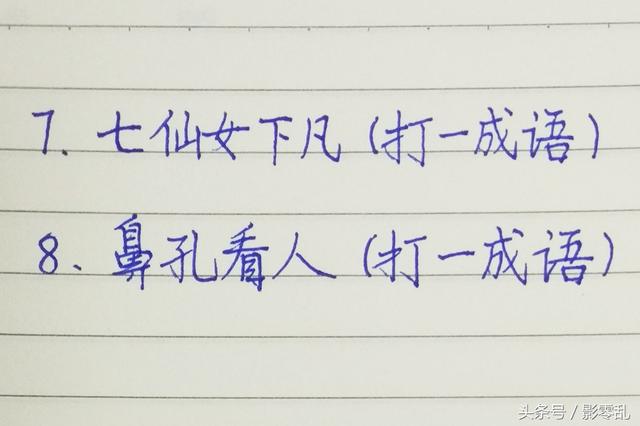 7. 七仙女下凡(打一成语)
8、鼻孔看人(打一成语)
头条号/影零乱